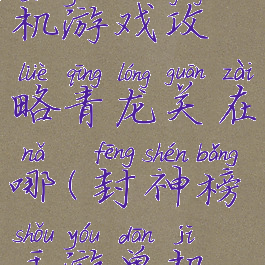 机游戏攻
lüè qīng lóng guān zài
略青龙关在
nǎ fēng shén bǎng
哪(封神榜
shǒu yóu dān jī
手游单机